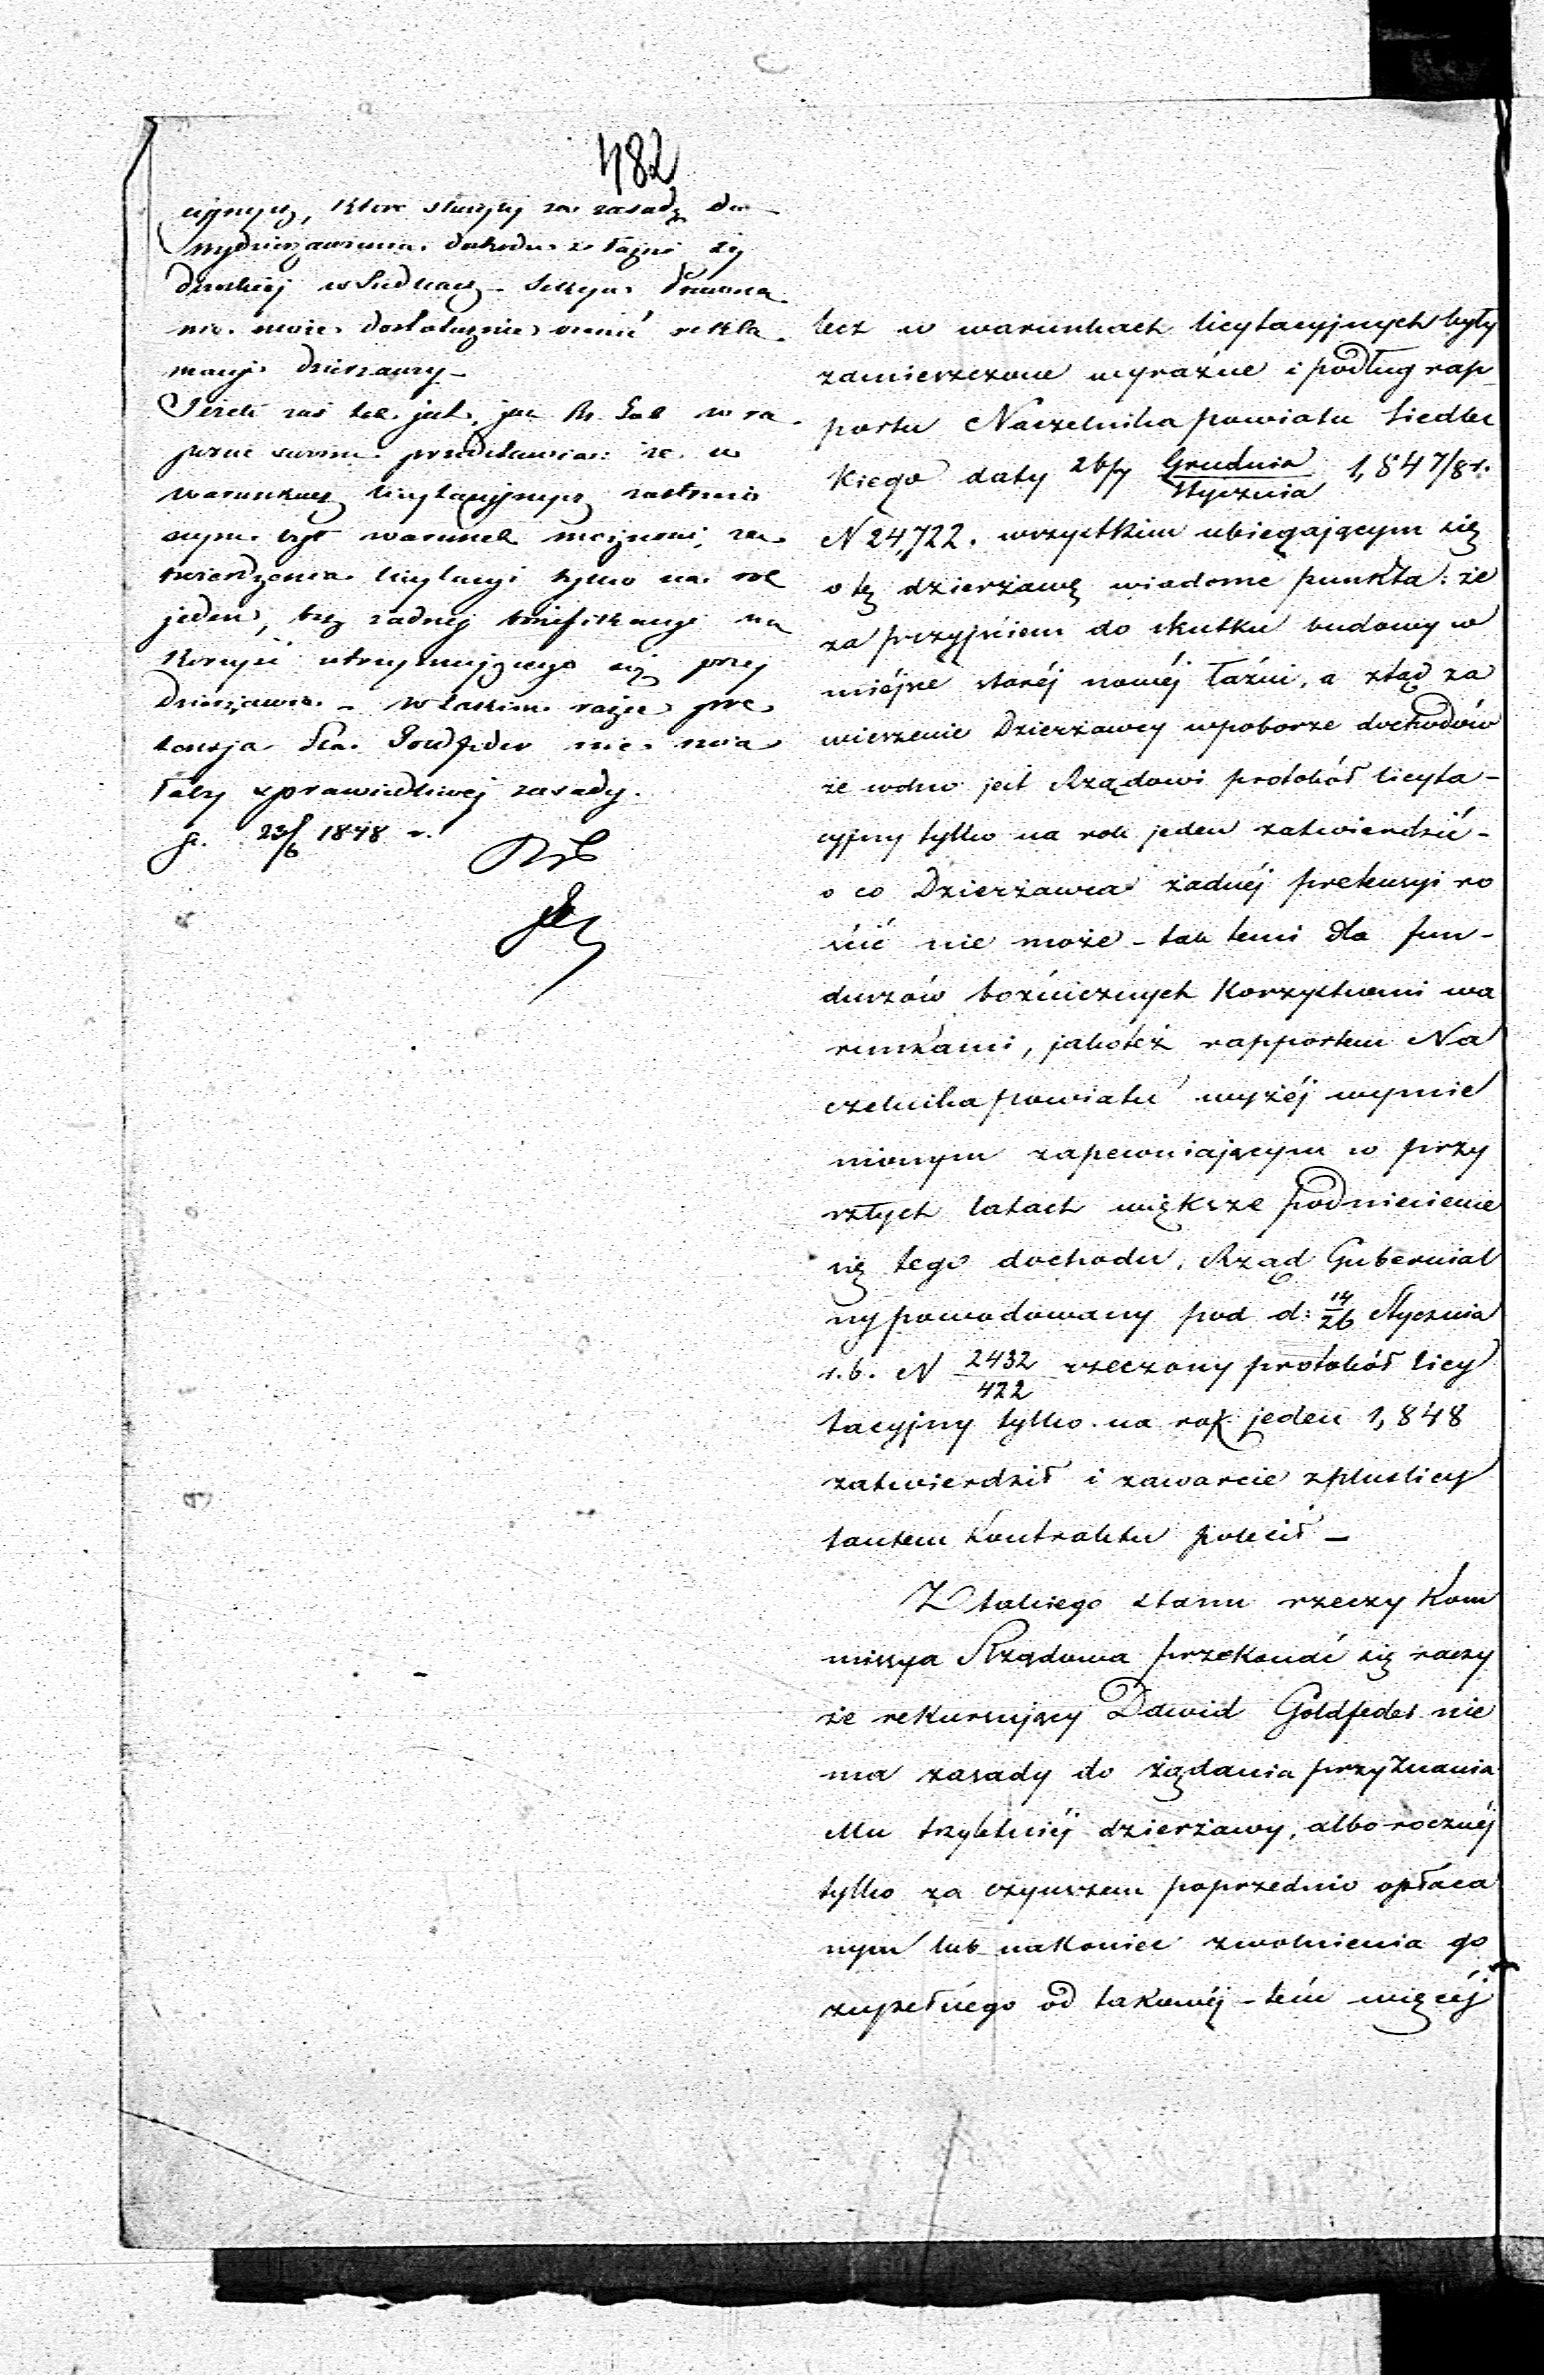 482
cyjnych, które służyły za zasadę do
wydzierżawienia dochodu z łaźni ży
dowskiej w Siedlcach. Sekcya Prawna
nie może dostatecznie ocenić rekla
macyi dzierżawcy –
Jeżeli zaś tak jest, jak R. Gub. w ra
porcie swoim przedstawia: że w
warunkach licytacyjnych zastrzeżo
nym był warunek możności, za
twierdzenia licytacyi tylko na rok
jeden, bez żadnej bonifikacyi na
korzyść utrzymującego się przy
dzierżawie – w takim razie pre
tensja Goldfeder nie mia
łaby sprawiedliwej zasady.
23/6 1848 r.
lecz w warunkach licytacyjnych były
zamieszczone wyraźne i podług rap
portu Naczelnika powiatu Siedlec
kiego daty 26/7 Grudnia/Stycznia 1,847/8 r.
N 24,722. wszystkim ubiegającym się
o tę dzierżawę wiadome punkta: że
za przyjściem do skutku budowy w
miéjsce staréj nowéj łaźni, a ztąd za
wieszenie Dzierżawcy w poborze dochodów
że wolno jest Rządowi protokół licyta-
cyjny tylko na rok jeden zatwierdzić –
o co Dzierżawca żadnéj pretensyi ro
ścić nie może – tak temi dla fun-
duszów bożnicznych korzystnemi wa
runkami, jakoteż rapportem Na
czelnika powiatu wyżéj wymie
nionym zapewniającym w przy
szłych latach większe podniesienie
się tego dochodu, Rząd Gubernial
ny powodowany pod d: 14/26 Stycznia
r. b. N 2432/422 rzeczony protokół licy
tacyjny tylko na rok jeden 1,848
zatwierdził i zawarcie z pluslicy
tantem kontraktu polecił –
Z takiego stanu rzeczy Kom
missya Rządowa przekonać się raczy
że rekursujący Dawid Goldfeder nie
ma zasady do żądania przyznania
Mu trzyletniéj dzierżawy, albo rocznéj
tylko za czynszem poprzednio opłaca
nym lub nakoniec zwolnienia go
zupełnego od takowéj – tém więcéj